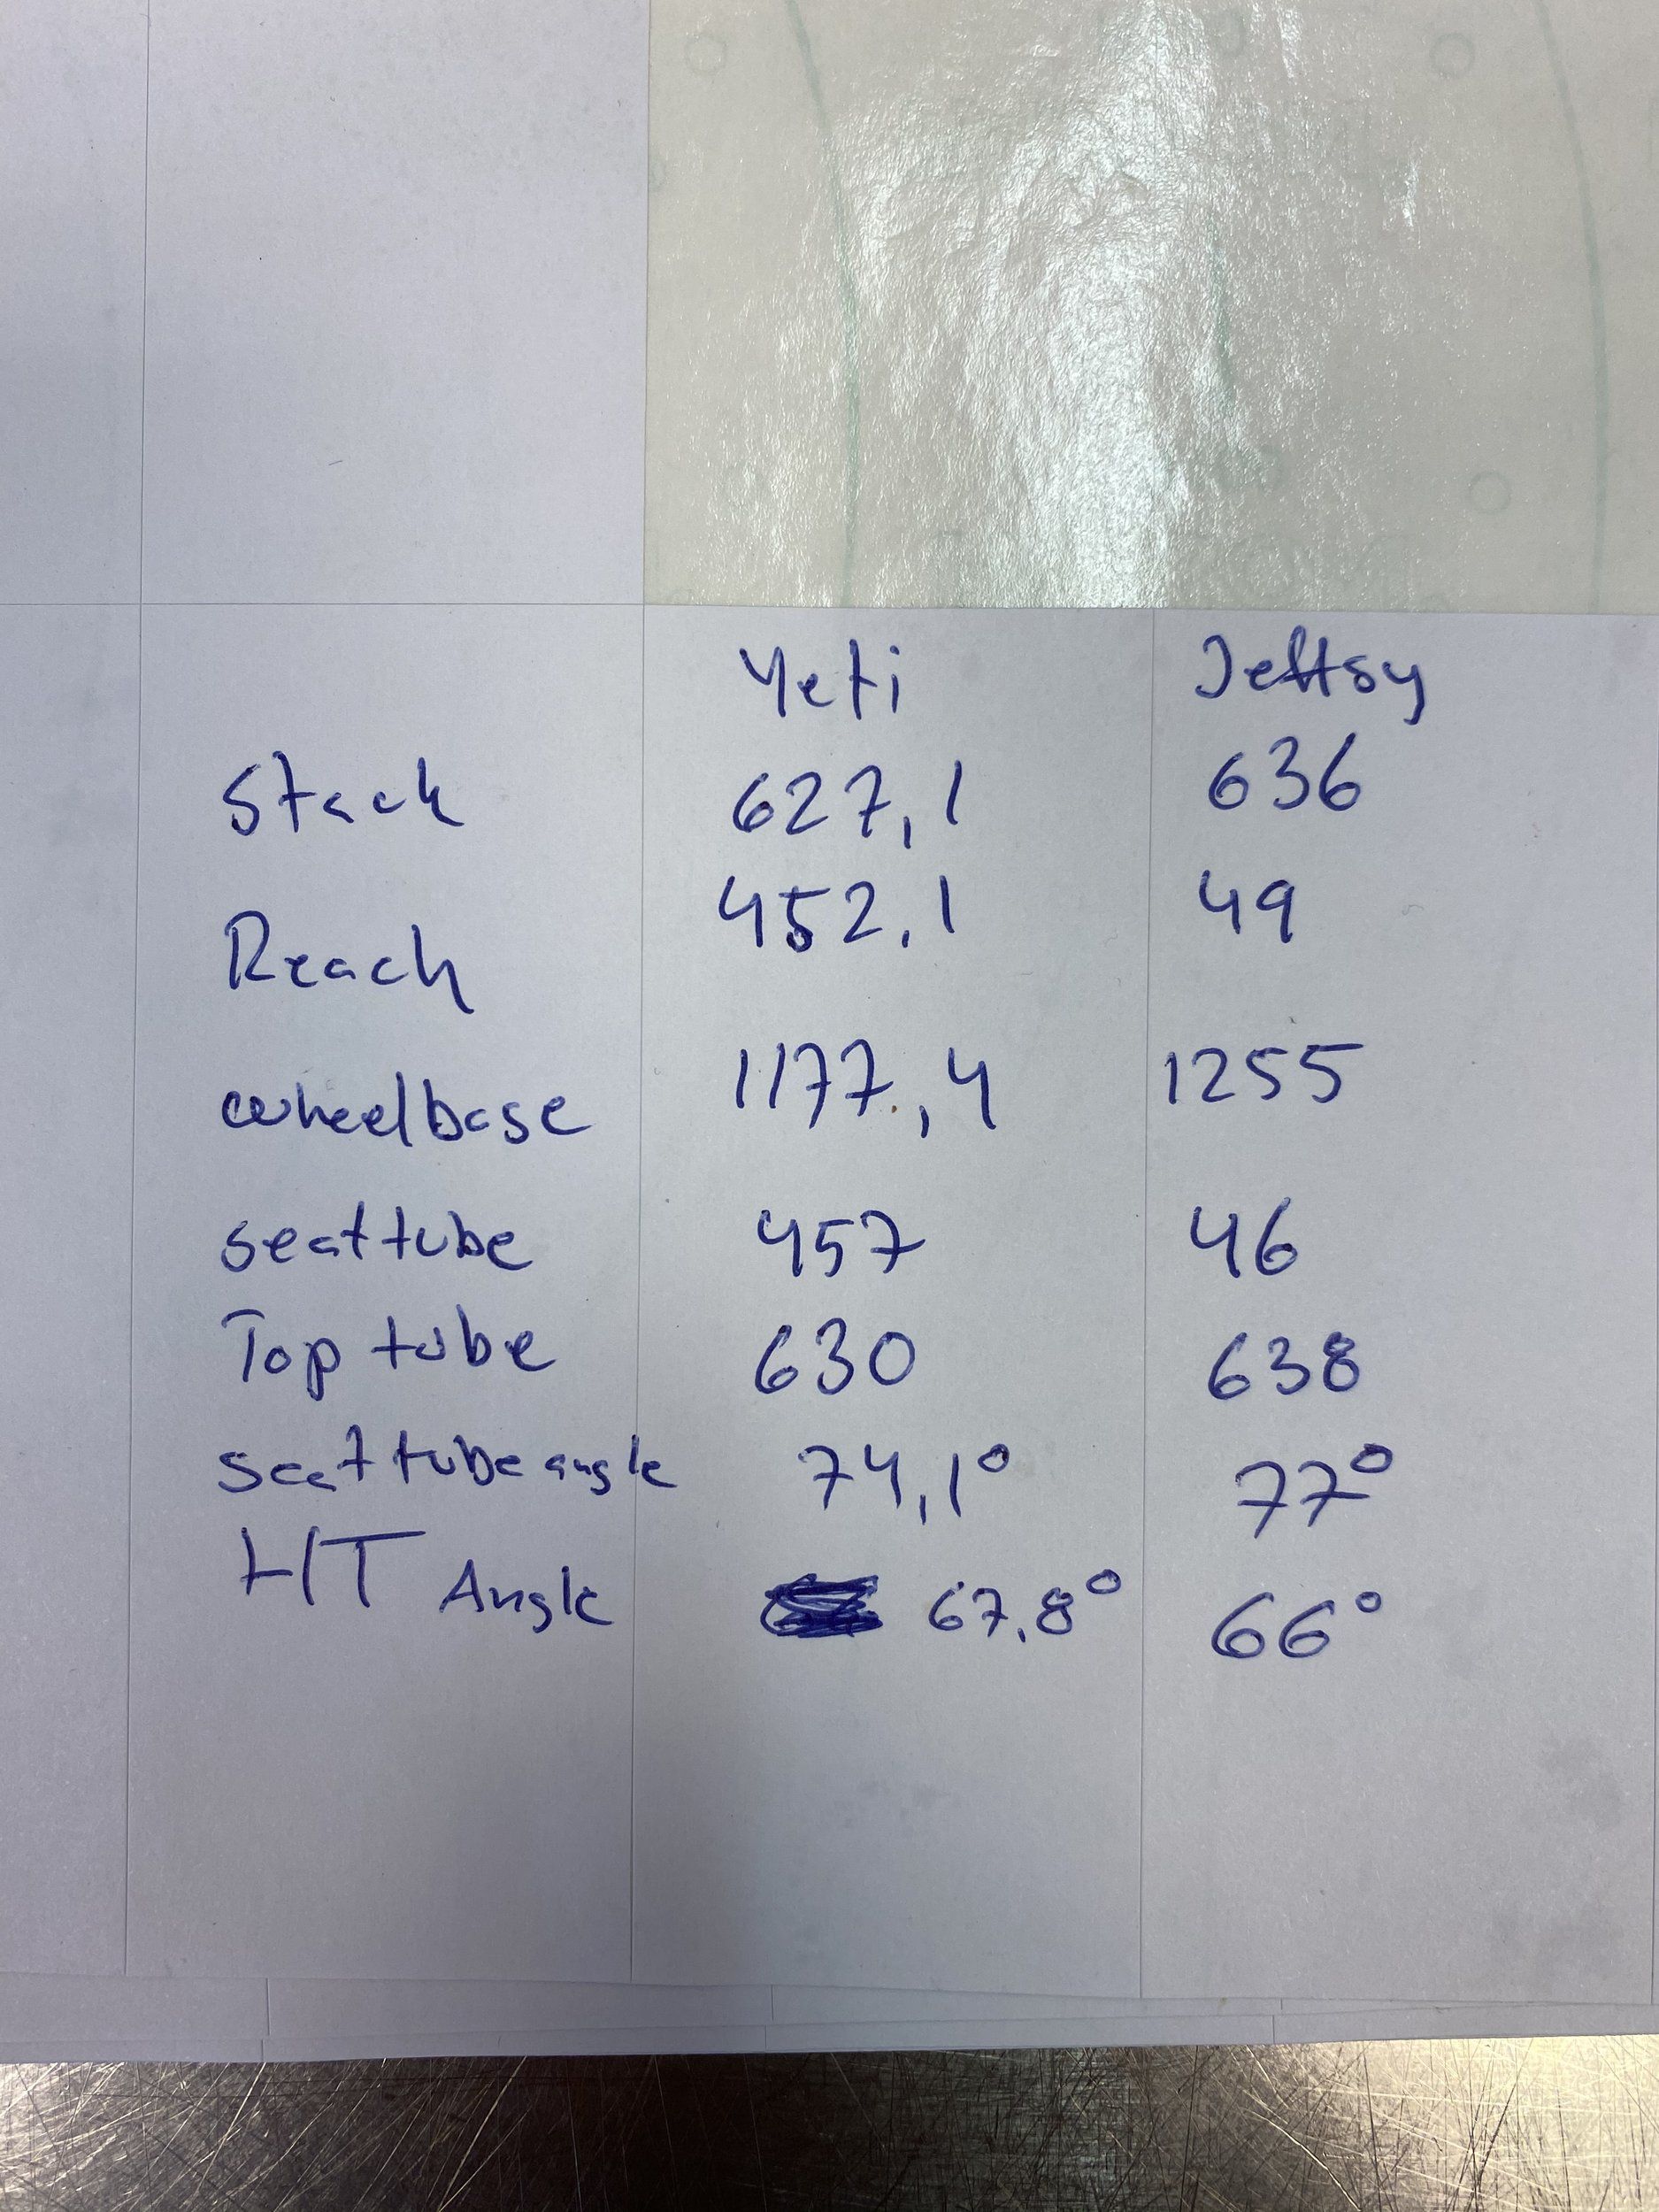 Yeti Jeffsy
Stack 627,1 636
Reach 452,1 49
wheelbase 1177,4 1255
seat tube 457 46
Top tube 630 638
seat tube angle 74,1° 77°
HT Angle 67,8° 66°